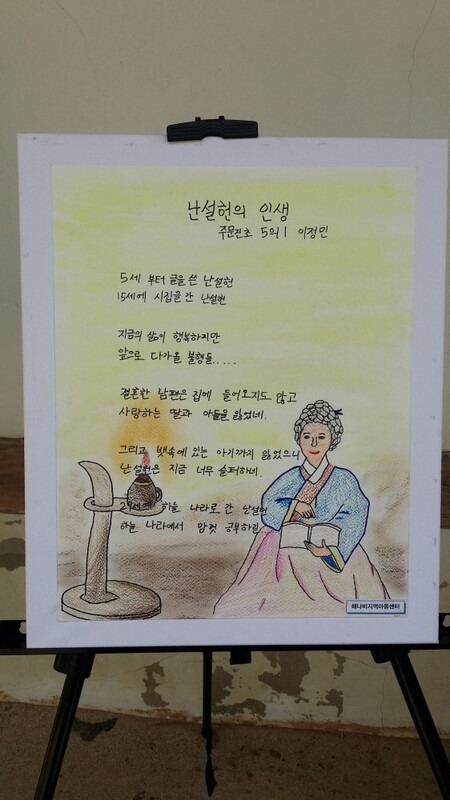 난설헌의 인생
주문진초 5의 1 이정민
5세 부터 글을 쓴 난설헌
15세에 시집을 간 난설헌
지금의 삶이 행복하지만
앞으로 다가올 불행들....
결혼한 남편은 집에 들어오지도 않고
사랑하는 딸과 아들을 잃었네.
그리고 뱃속에 있는 아기까지 잃었으니
난설헌은 지금 너무 슬퍼하네.
하늘 나라로 간 난설헌
하늘 나라에서 맘껏
해나비지역아동센터